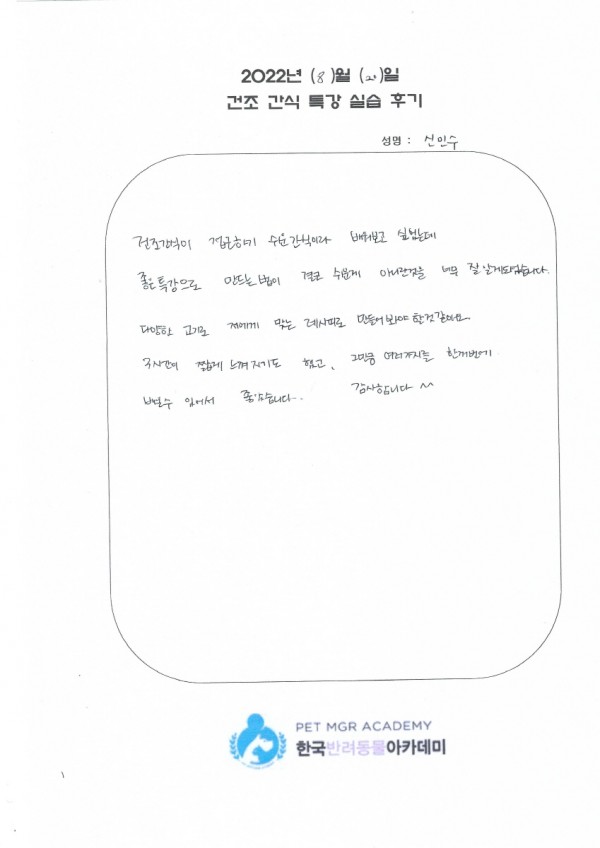 2022년 (8)월 (21)일
건조 간식 특강 실습 후기
성명 : 신인수
건조간식이 접근하기 쉬운간식이라 배워보고 싶었는데
좋은 특강으로 만드는법이 결코 쉬운게 아니란것을 너무 잘 알게되었습니다.
다양한 고기로 저에게 맞는 레시피로 만들어봐야 할것같아요.
3시간이 짧게 느껴지기도 했고, 그만큼 여러가지를 한꺼번에
배울수 있어서 좋았습니다. 감사합니다 ^^
PET MGR ACADEMY
한국반려동물아카데미